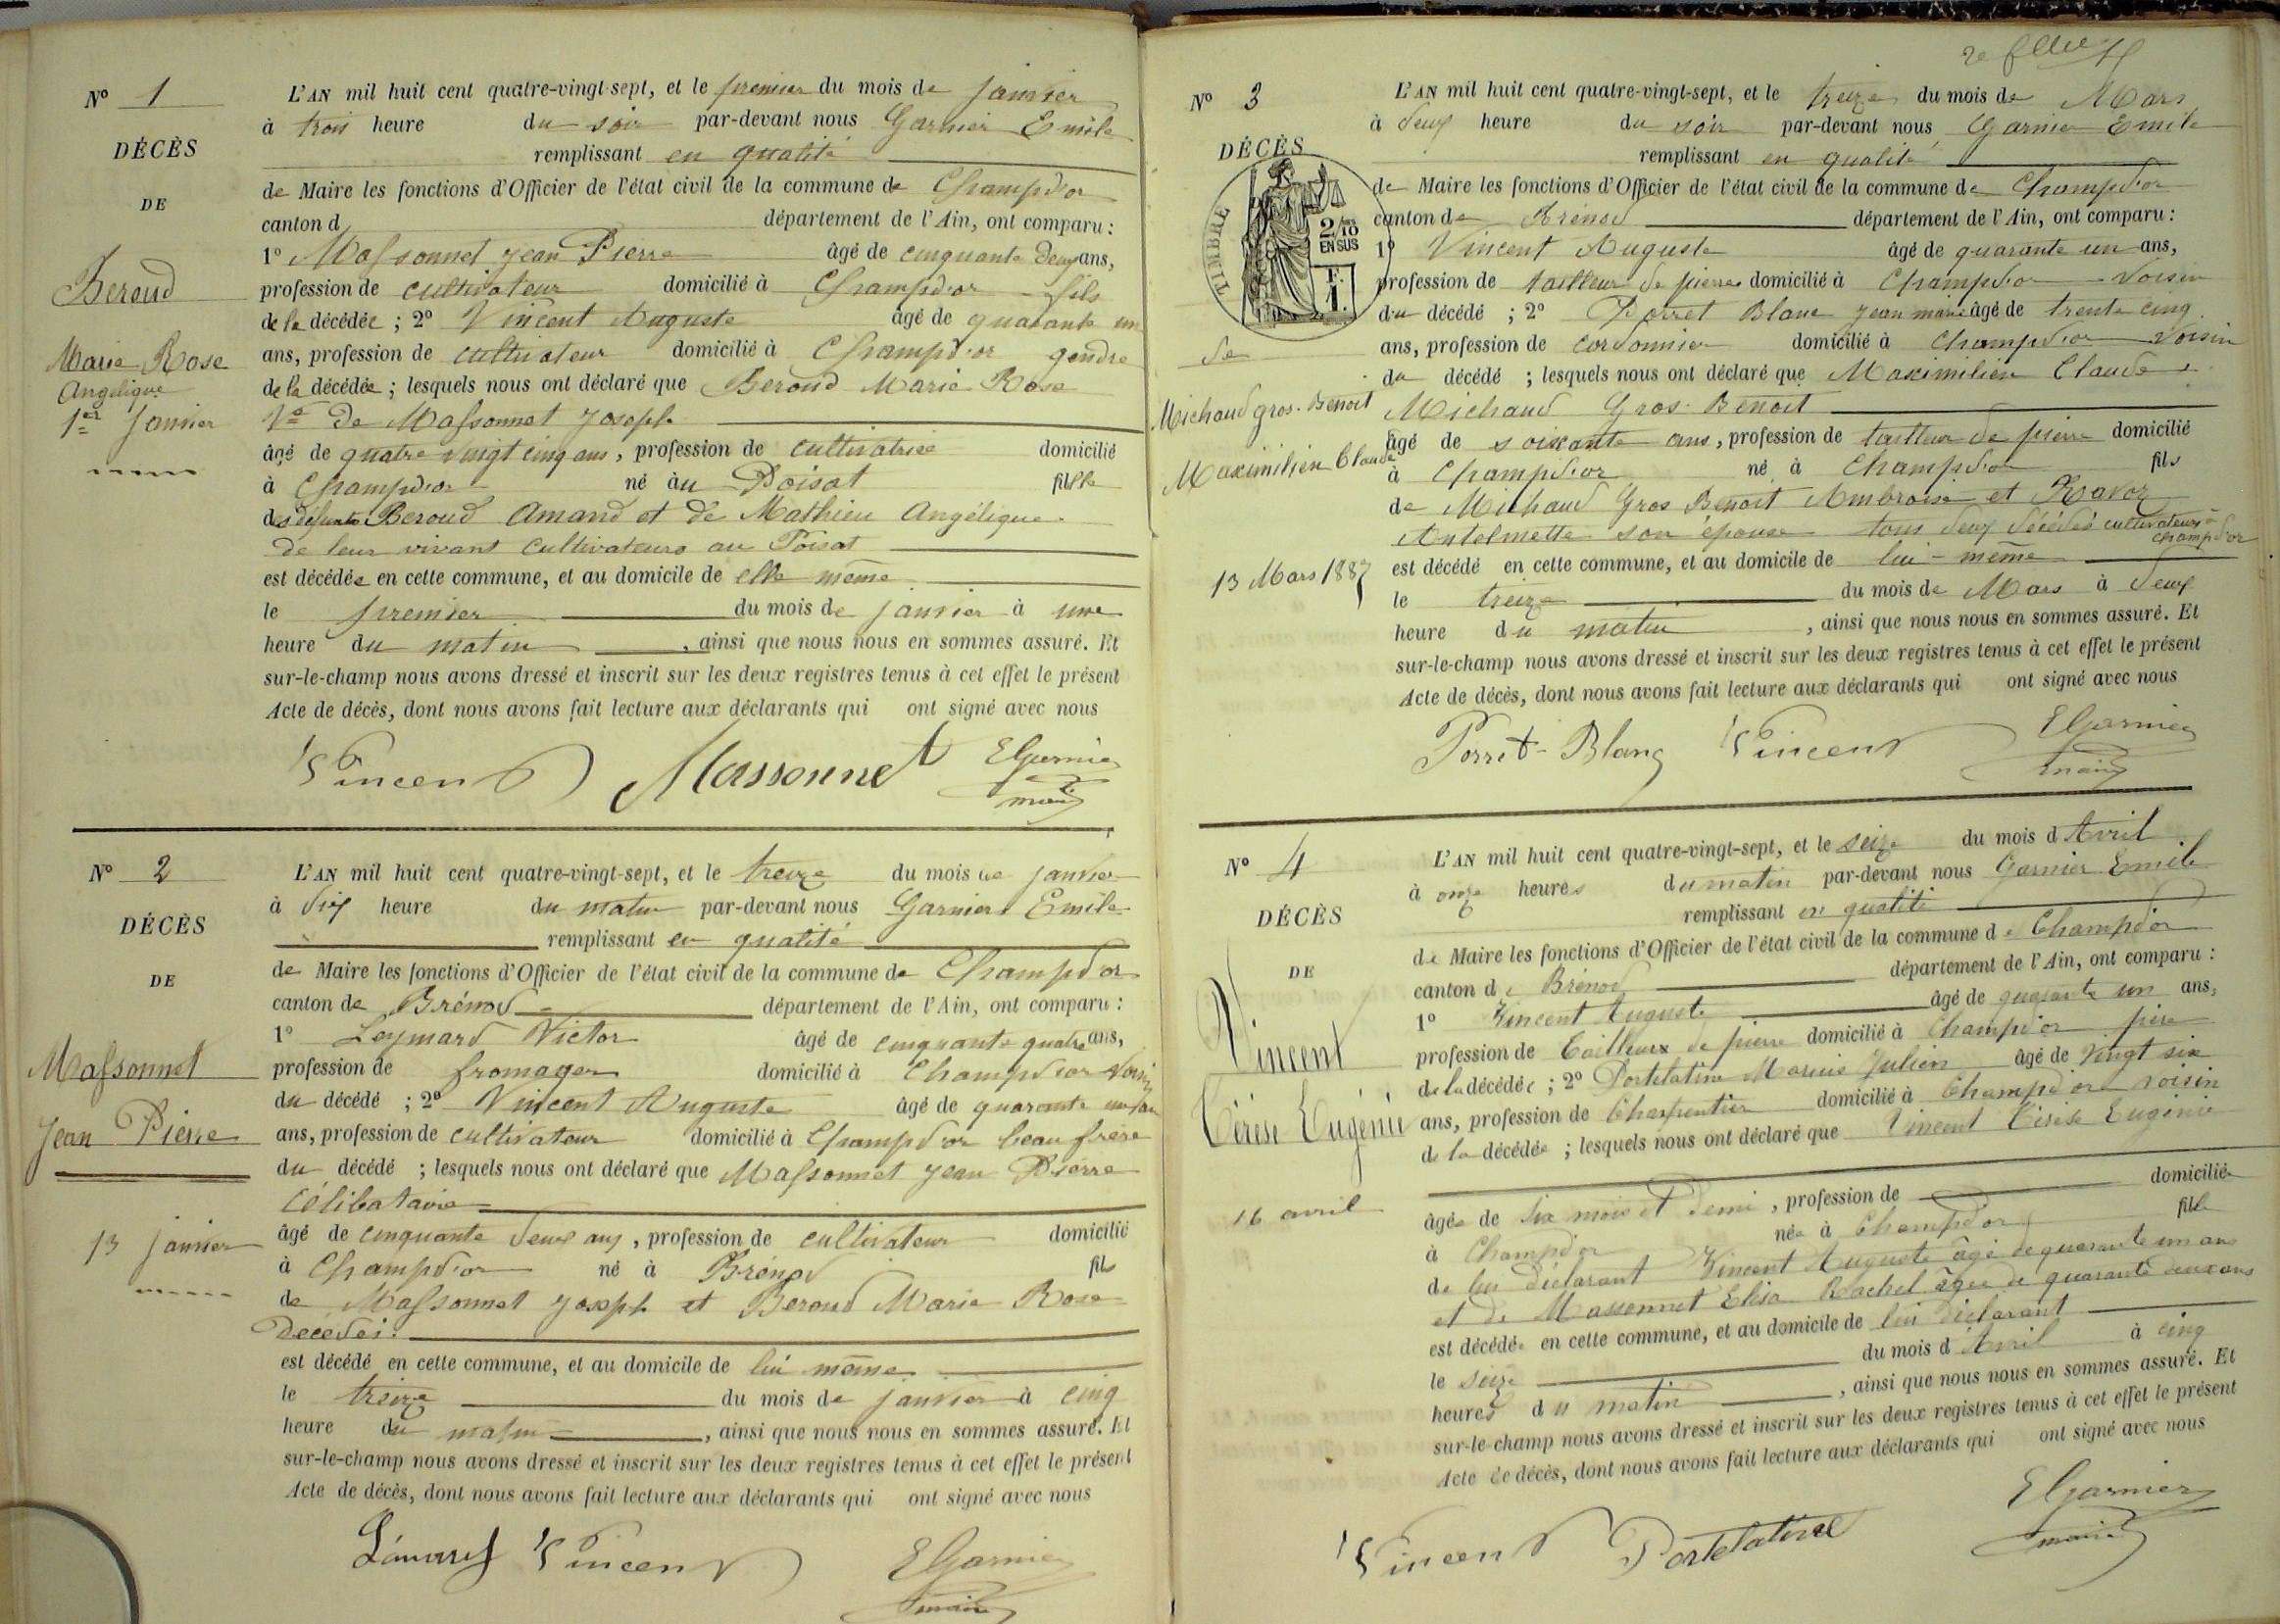 N° 1
DÉCÈS
DE
Beroud
Marie Rose
Angélique
1er Janvier
L'AN mil huit cent quatre-vingt-sept, et le premier du mois de janvier
à trois heure du soir par-devant nous Garnier Emile
remplissant en qualité
de Maire les fonctions d'Officier de l'état civil de la commune de Champdor
canton d département de l'Ain, ont comparu :
1° Massonnet Jean Pierre âgé de cinquante deux ans,
profession de cultivateur domicilié à Champdor fils
de la décédée ; 2° Vincent Auguste âgé de quarante un
ans, profession de cultivateur domicilié à Champdor gendre
de la décédée ; lesquels nous ont déclaré que Beroud Marie Rose
Ve de Massonnet Joseph
âgé de quatre vingt cinq ans, profession de cultivatrice domicilié
à Champdor né au Poisat fille
des défunts Beroud Amand et de Mathieu Angélique
de leur vivant cultivateurs au Poisat
est décédée en cette commune, et au domicile de elle même
le premier du mois de janvier à une
heure du matin, ainsi que nous nous en sommes assuré. Et
sur-le-champ nous avons dressé et inscrit sur les deux registres tenus à cet effet le présent
Acte de décès, dont nous avons fait lecture aux déclarants qui ont signé avec nous
Vincent Massonnet EGarnier
maire
N° 2
DÉCÈS
DE
Massonnet
Jean Pierre
13 janvier
L'AN mil huit cent quatre-vingt-sept, et le treize du mois de janvier
à dix heure du matin par-devant nous Garnier Emile
remplissant en qualité
de Maire les fonctions d'Officier de l'état civil de la commune de Champdor
canton de Brénod département de l'Ain, ont comparu :
1° Leymard Victor âgé de cinquante quatre ans,
profession de fromager domicilié à Champdor voisin
du décédé ; 2° Vincent Auguste âgé de quarante un
ans, profession de cultivateur domicilié à Champdor beau frère
du décédé ; lesquels nous ont déclaré que Massonnet Jean Pierre
Célibataire
âgé de cinquante deux ans, profession de cultivateur domicilié
à Champdor né à Brénod fils
de Massonnet Joseph et Beroud Marie Rose
Décédés.
est décédé en cette commune, et au domicile de lui même
le treize du mois de janvier à cinq
heure du matin, ainsi que nous nous en sommes assuré. Et
sur-le-champ nous avons dressé et inscrit sur les deux registres tenus à cet effet le présent
Acte de décès, dont nous avons fait lecture aux déclarants qui ont signé avec nous
Vincent EGarnier
maire
N° 3
DÉCÈS
TIMBRE
2/10
EN SUS
F.
1.
de
Michaud gros-Benoit
Maximilien Claude
13 Mars 1887
L'AN mil huit cent quatre-vingt-sept, et le treize du mois de Mars
à deux heure du soir par-devant nous Garnier Emile
remplissant en qualité
de Maire les fonctions d'Officier de l'état civil de la commune de Champdor
canton de Brénod département de l'Ain, ont comparu :
1° Vincent Auguste âgé de quarante un ans,
profession de tailleur de pierres domicilié à Champdor voisin
du décédé ; 2° Porret Blanc Jean marie âgé de trente cinq
ans, profession de cordonnier domicilié à Champdor voisin
du décédé ; lesquels nous ont déclaré que Maximilien Claude
Michaud Gros-Benoit
âgé de soixante ans, profession de tailleur de pierre domicilié
à Champdor né à Champdor fils
de Michaud Gros Benoit Ambroise et Ravoz
Antelmette son épouse tous deux décédés cultivateurs à
Champdor
est décédé en cette commune, et au domicile de lui-même
le treize du mois de Mars à deux
heure du matin, ainsi que nous nous en sommes assuré. Et
sur-le-champ nous avons dressé et inscrit sur les deux registres tenus à cet effet le présent
Acte de décès, dont nous avons fait lecture aux déclarants qui ont signé avec nous
Porret-Blanc Vincent EGarnier
maire
N° 4
DÉCÈS
DE
Vincent
Térèse Eugénie
16 avril
L'AN mil huit cent quatre-vingt-sept, et le seize du mois d'Avril
à onze heures du matin par-devant nous Garnier Emile
remplissant en qualité
de Maire les fonctions d'Officier de l'état civil de la commune de Champdor
canton de Brénod département de l'Ain, ont comparu :
1° Vincent Auguste âgé de quarante un ans,
profession de Tailleur de pierre domicilié à Champdor père
de la décédée ; 2° Portelatine Marius Julien âgé de vingt six
ans, profession de Charpentier domicilié à Champdor voisin
de la décédée ; lesquels nous ont déclaré que Vincent Térèse Eugénie
âgée de six mois et demi, profession de domiciliée
à Champdor née à Champdor fille
de lui déclarant Vincent Auguste âgé de quarante un ans
et de Massonnet Elisa Rachel âgée de quarante deux ans
est décédée en cette commune, et au domicile de lui déclarant
le seize du mois d'Avril à cinq
heures du matin, ainsi que nous nous en sommes assuré. Et
sur-le-champ nous avons dressé et inscrit sur les deux registres tenus à cet effet le présent
Acte de décès, dont nous avons fait lecture aux déclarants qui ont signé avec nous
Vincent Portelatine EGarnier
maire